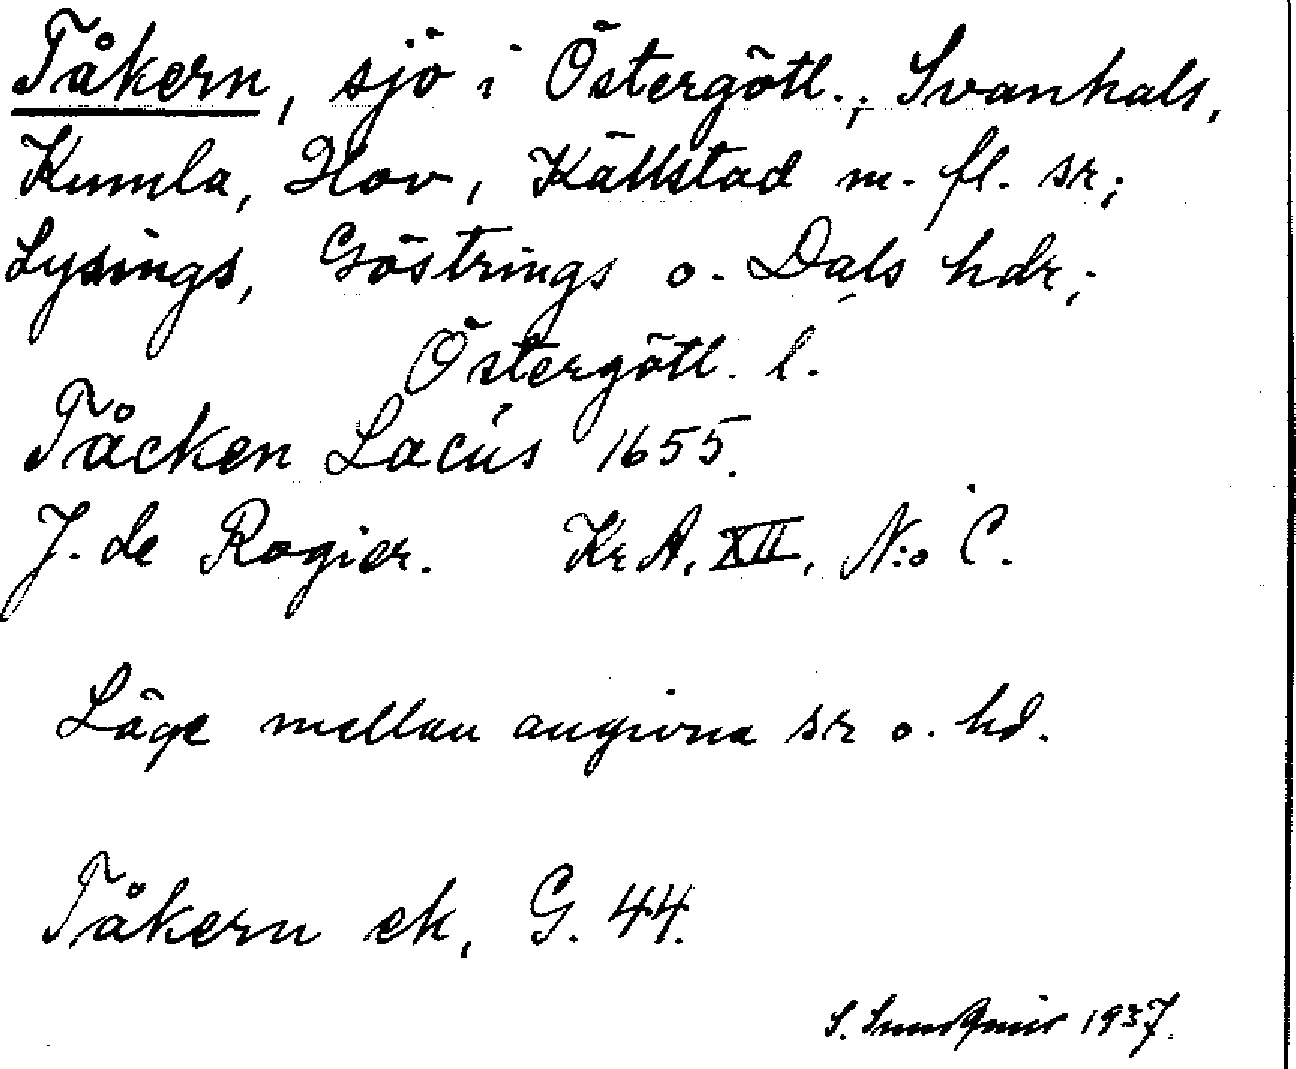 Tåkern, sjö i Östergötl.; Svanhals,
Kumla, Hov, Källstad m. fl. sr;
Lysings, Göstrings o. Dals hdr;
Östergötl. l.
Tåcken Lacús 1655.
J. de Rogier. Kr A. XII, N:o C.
Läge mellan angivna sr o. hd.
Tåkern ek, G. 44.
S. 1937.